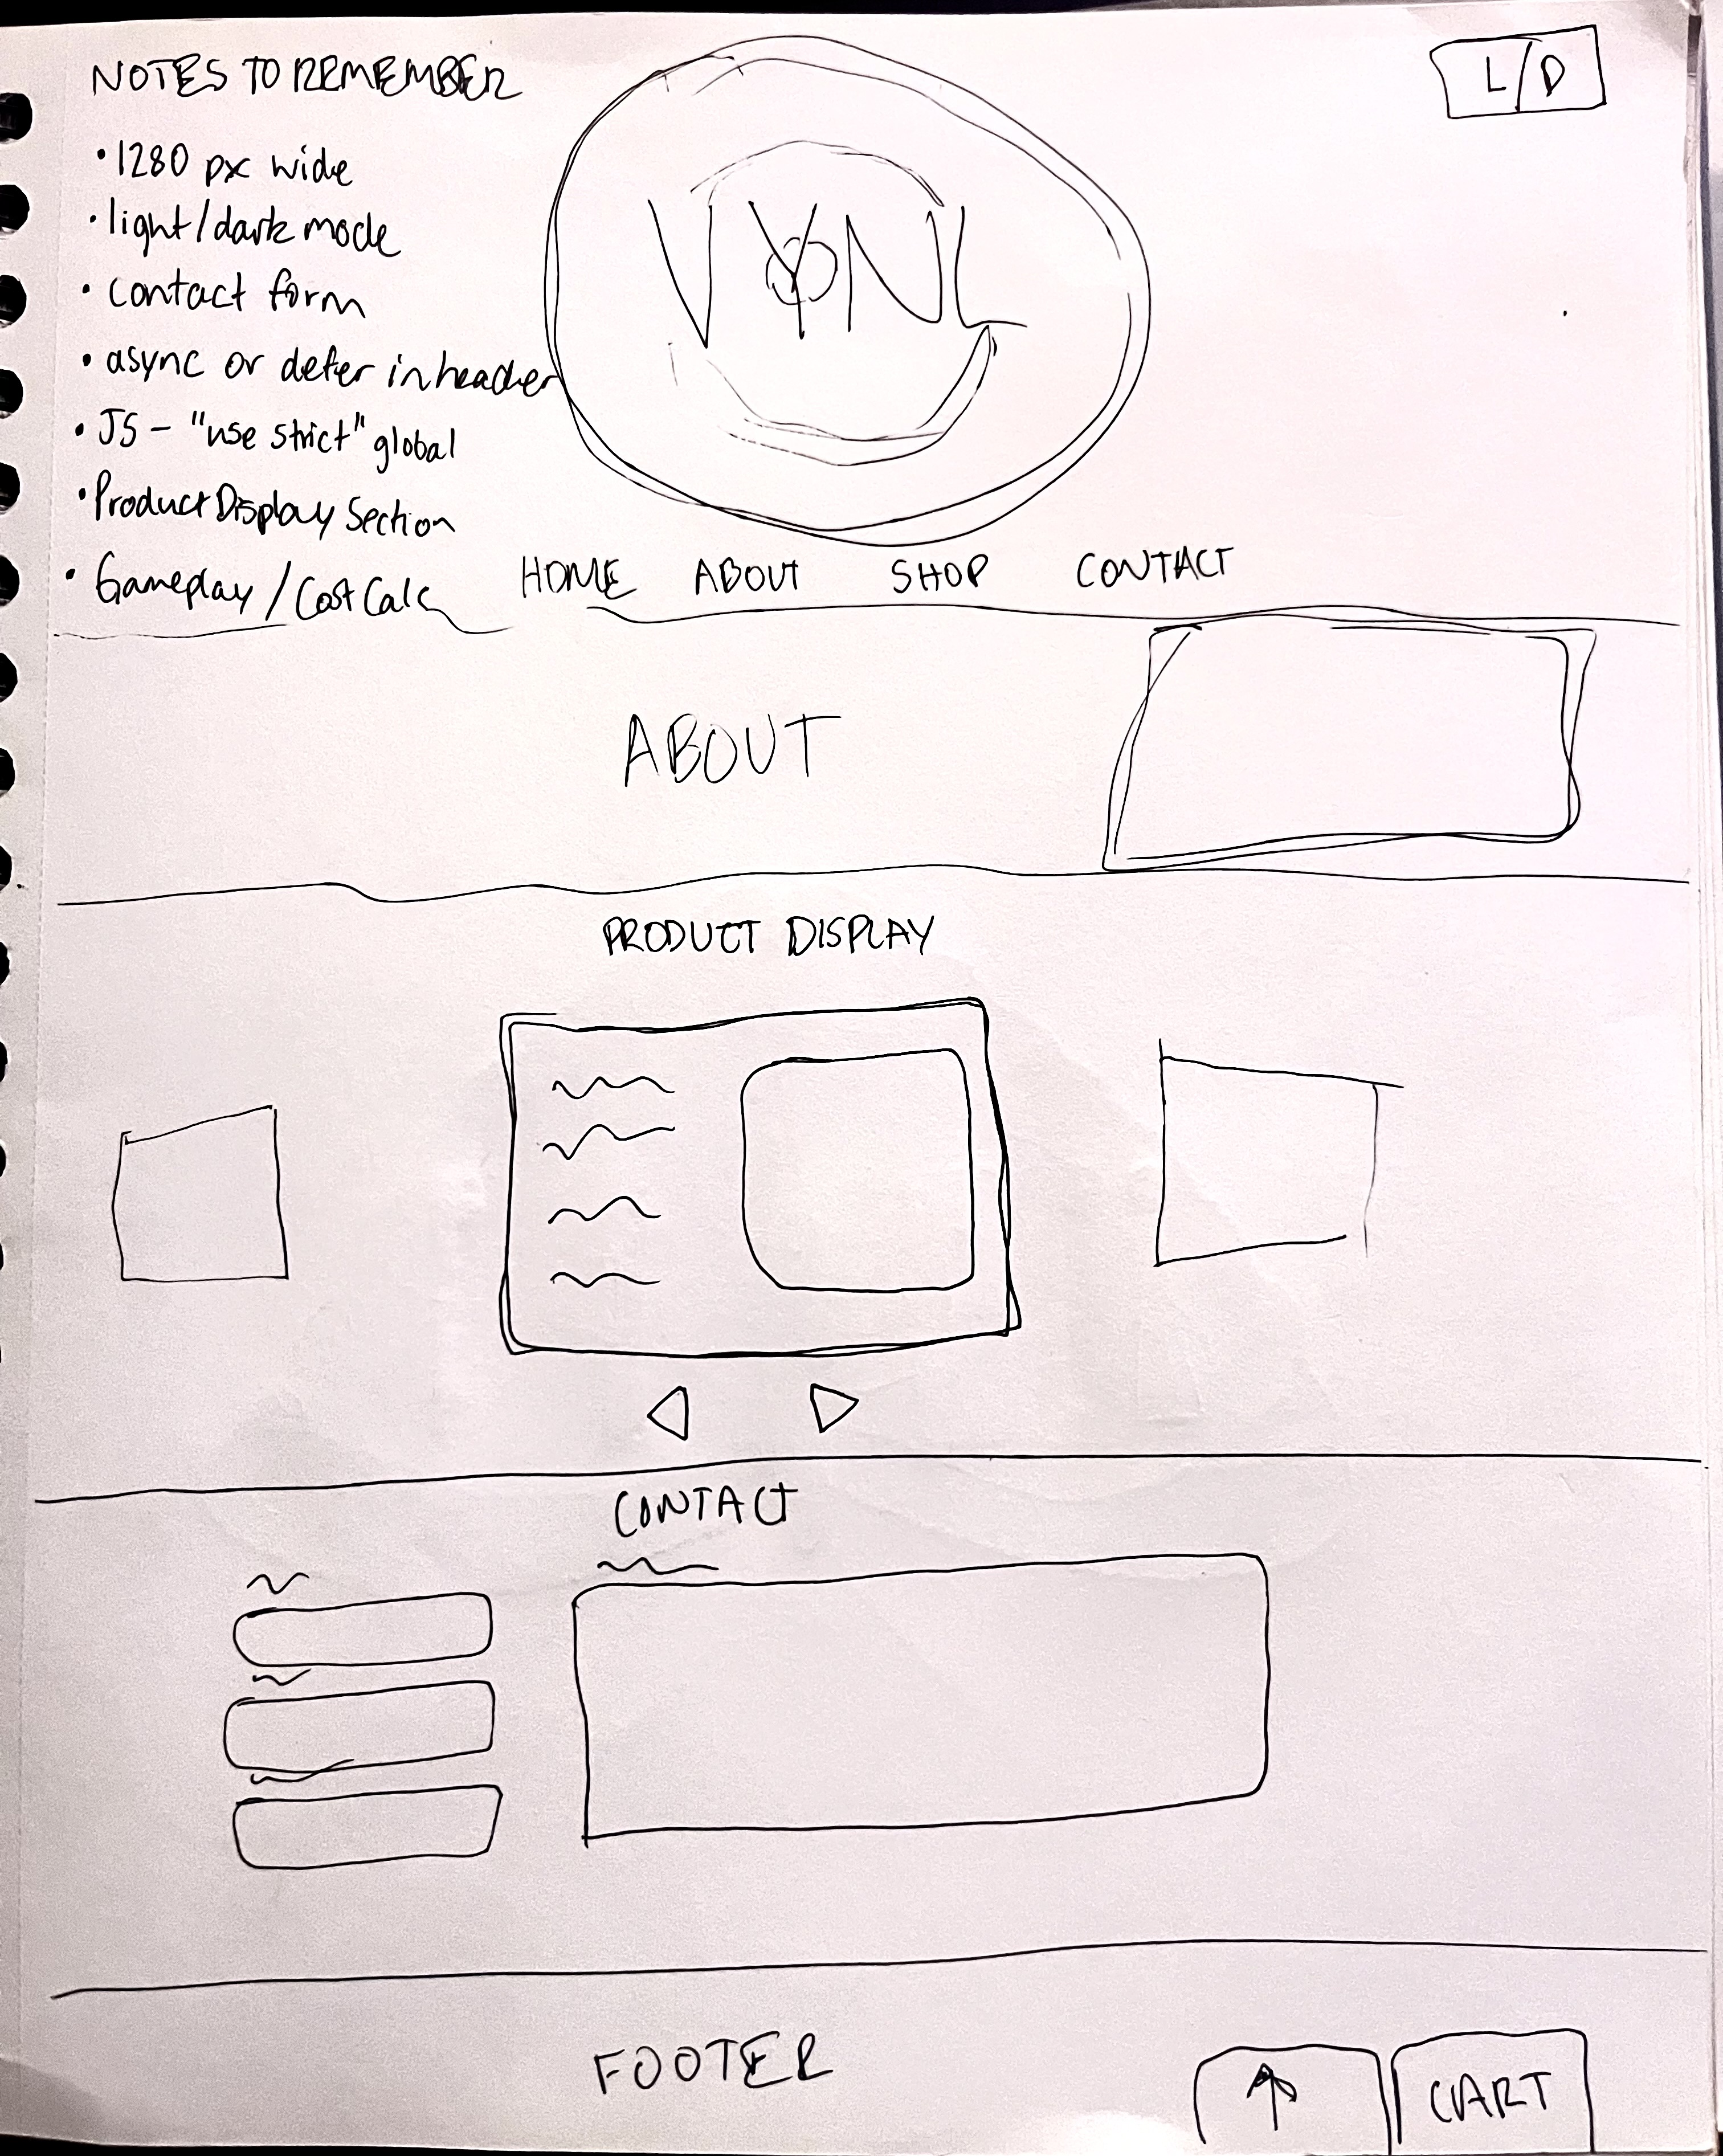 NOTES TO REMEMBER
• 1280 px wide
• light/dark mode
• contact form
• async or defer in header
• JS - "use strict" global
• Product Display Section
• Gameplay / Cost Calc
L/D
VYNL
HOME ABOUT SHOP CONTACT
ABOUT
PRODUCT DISPLAY
CONTACT
FOOTER
CART